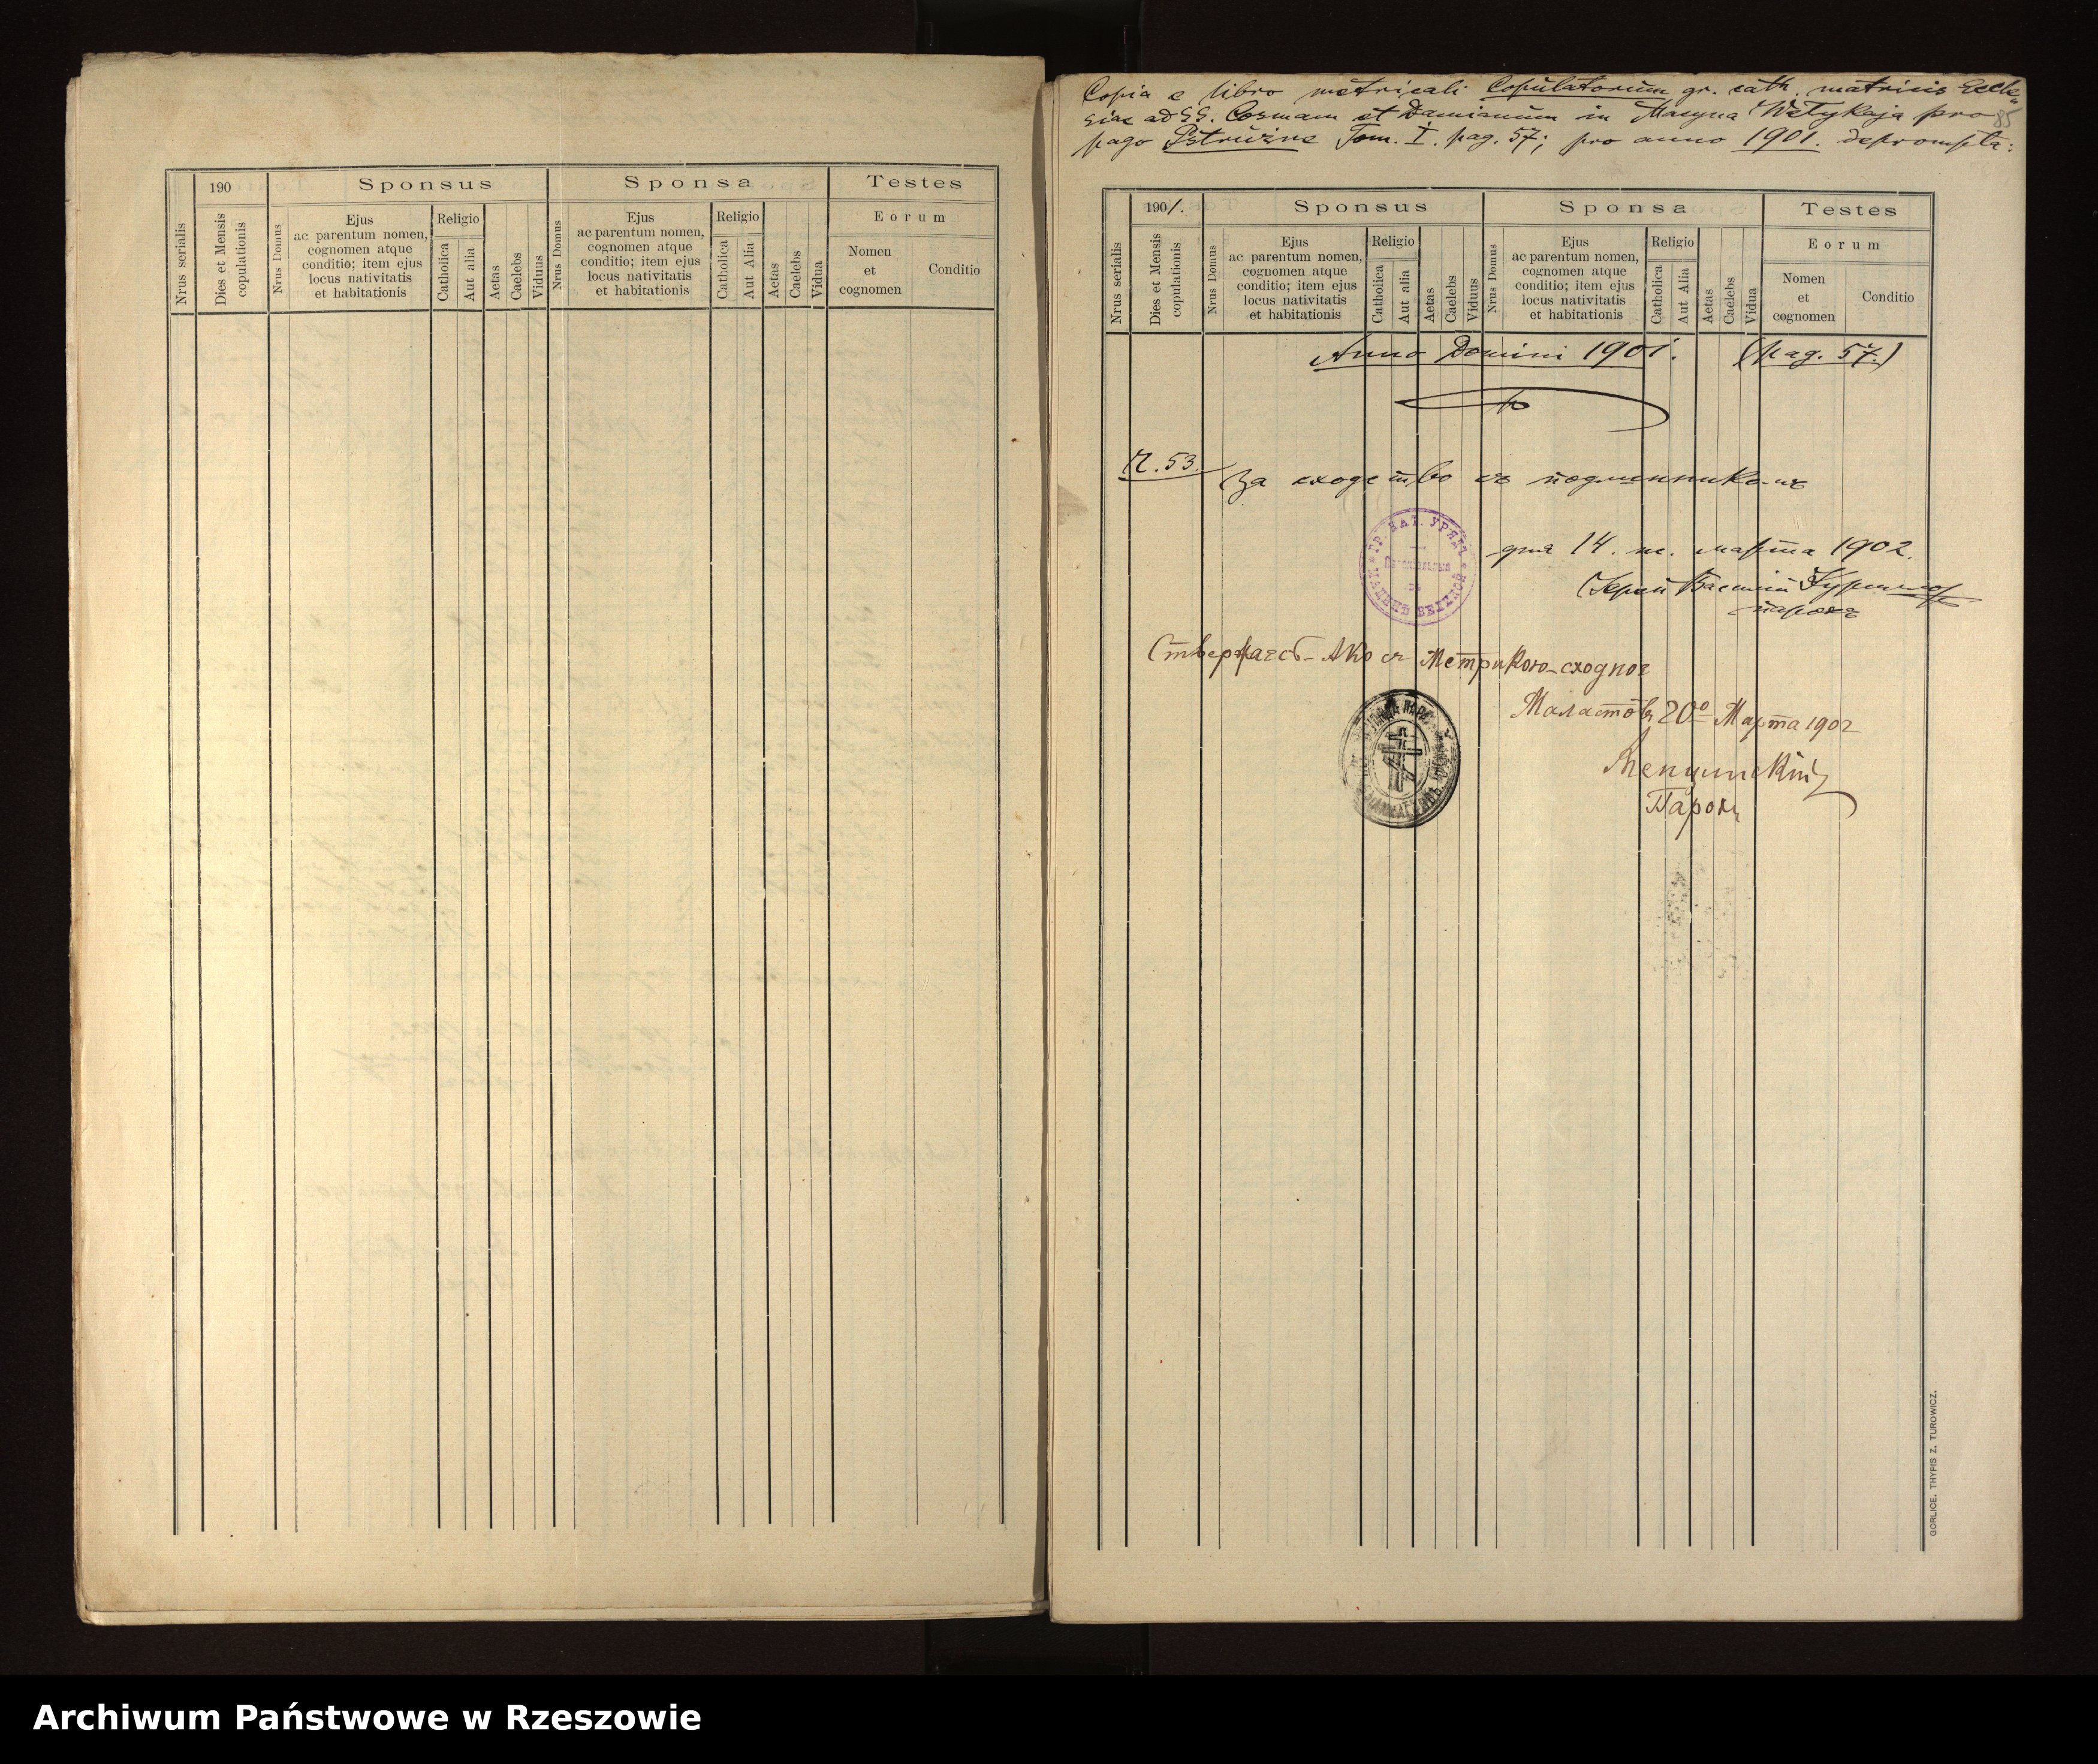 190
Sponsus
Sponsa
Testes
Nrus serialis
Dies et Mensis
copulationis
Nrus Domus
Ejus
ac parentum nomen,
cognomen atque
conditio; item ejus
locus nativitatis
et habitationis
Religio
Catholica
Aut alia
Aetas
Caelebs
Viduus
Nrus Domus
Ejus
ac parentum nomen,
cognomen atque
conditio; item ejus
locus nativitatis
et habitationis
Religio
Catholica
Aut Alia
Aetas
Caelebs
Vidua
Eorum
Nomen
et
cognomen
Conditio
Copia e libro metricali Copulatorum gr. cath. matricis Eccle-
siae ad SS. Cosmam et Damianum in Męcyna Wełykaja pro
85
pago Pstrużne Tom. I. pag. 57; pro anno 1901. deprompta:
1901.
Sponsus
Sponsa
Testes
Nrus serialis
Dies et Mensis
copulationis
Nrus Domus
Ejus
ac parentum nomen,
cognomen atque
conditio; item ejus
locus nativitatis
et habitationis
Religio
Catholica
Aut alia
Aetas
Caelebs
Viduus
Nrus Domus
Ejus
ac parentum nomen,
cognomen atque
conditio; item ejus
locus nativitatis
et habitationis
Religio
Catholica
Aut Alia
Aetas
Caelebs
Vidua
Eorum
Nomen
et
cognomen
Conditio
Anno Domini 1901. (pag. 57.)
Ч. 53.
За сходство съ подлинникомъ
дня 14. н. марта 1902.
Іерей Василій
парохъ
ГР. КАТ. УРЯДЪ
Ако съ Метрикою сходное
Маластôвъ 20º Марта 1902
Парохъ
GORLICE, THYPIS Z. TUROWICZ.
Archiwum Państwowe w Rzeszowie